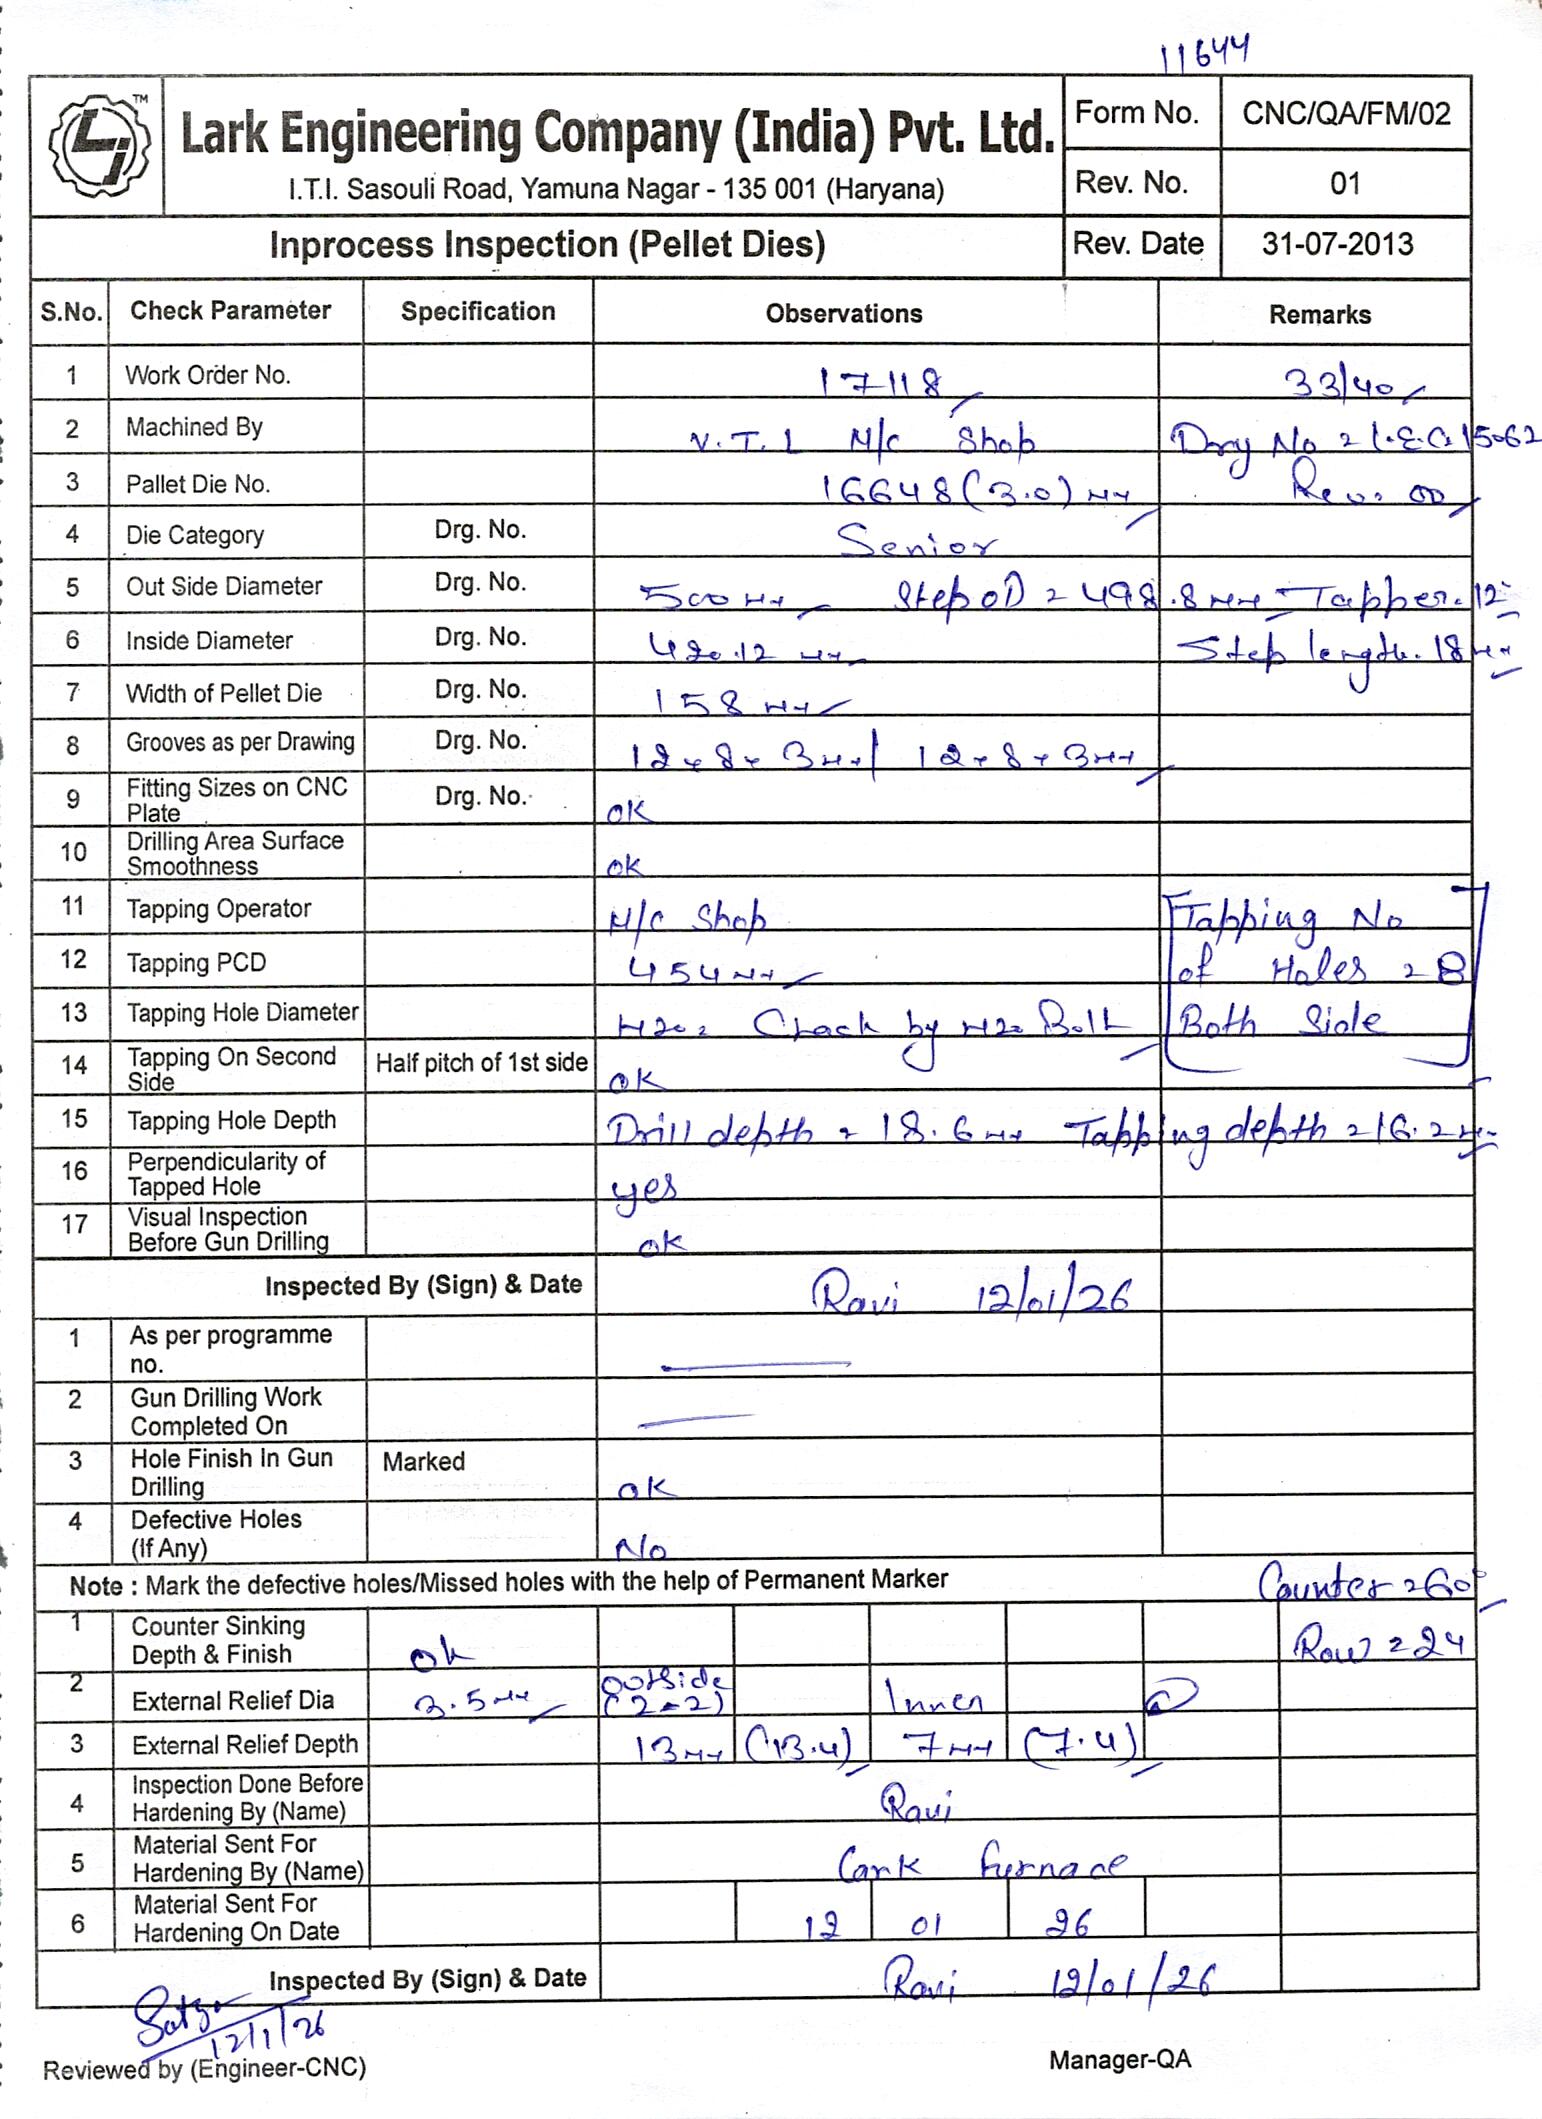 11644
TM
Lark Engineering Company (India) Pvt. Ltd.
I.T.I. Sasouli Road, Yamuna Nagar - 135 001 (Haryana)
Form No. CNC/QA/FM/02
Rev. No. 01
Inprocess Inspection (Pellet Dies) Rev. Date 31-07-2013
S.No. Check Parameter Specification Observations Remarks
1 Work Order No. 17118 33/40
2 Machined By V.T.L M/c Shop Drg No = L.E.C. 15062
3 Pallet Die No. 16648 (3.0) MM Rev. 00
4 Die Category Drg. No. Senior
5 Out Side Diameter Drg. No. 500 MM Step OD = 498.8 MM Tapper. 12°
6 Inside Diameter Drg. No. 420.12 MM Step length. 18 MM
7 Width of Pellet Die Drg. No. 158 MM
8 Grooves as per Drawing Drg. No. 12x8x3MM/ 12x8x3MM
9 Fitting Sizes on CNC Plate Drg. No. OK
10 Drilling Area Surface Smoothness OK
11 Tapping Operator M/C Shop Tapping No
12 Tapping PCD 454 MM of Holes = 8
13 Tapping Hole Diameter M20 = Chack by M20 Bolt Both Side
14 Tapping On Second Side Half pitch of 1st side OK
15 Tapping Hole Depth Drill depth = 18.6 MM Tapping depth = 16.2 MM
16 Perpendicularity of Tapped Hole yes
17 Visual Inspection Before Gun Drilling OK
Inspected By (Sign) & Date Ravi 12/01/26
1 As per programme no.
2 Gun Drilling Work Completed On
3 Hole Finish In Gun Drilling Marked OK
4 Defective Holes (If Any) No
Note : Mark the defective holes/Missed holes with the help of Permanent Marker Counter = 60°
1 Counter Sinking Depth & Finish Ok Row = 24
2 External Relief Dia 3.5 MM outside (2-2) Inner
3 External Relief Depth 13 MM (13.4) 7 MM (7.4)
4 Inspection Done Before Hardening By (Name) Ravi
5 Material Sent For Hardening By (Name) Lark furnace
6 Material Sent For Hardening On Date 12 01 26
Inspected By (Sign) & Date Ravi 12/01/26
12/1/26
Reviewed by (Engineer-CNC) Manager-QA